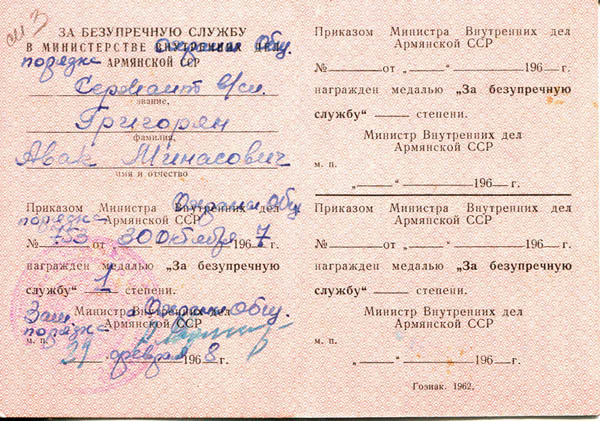 см 3
ЗА БЕЗУПРЕЧНУЮ СЛУЖБУ
В МИНИСТЕРСТВЕ ВНУТРЕННИХ ДЕЛ Охраны Общ.
порядка АРМЯНСКОЙ ССР
Сержант в/сл.
звание,
Григорян
фамилия,
Авак Минасович
имя и отчество
Приказом Министра Внутренних дел Охраны Общ.
порядка Армянской ССР
№ 753 от 30 Октября 196 7
награжден медалью „За безупречную
службу“ 1 степени.
Зам Министр Внутренних Охраны общ.
порядка Армянской ССР
м. п.
29 февраля 196 8 г.
Приказом Министра Внутренних дел
Армянской ССР
№ от „ “ 196 г.
награжден медалью „За безупречную
службу“ степени.
Министр Внутренних дел
Армянской ССР
м. п.
„ “ 196 г.
Приказом Министра Внутренних дел
Армянской ССР
№ от „ “ 196 г.
награжден медалью „За безупречную
службу“ степени.
Министр Внутренних дел
Армянской ССР
м. п.
„ “ 196 г.
Гознак. 1962.